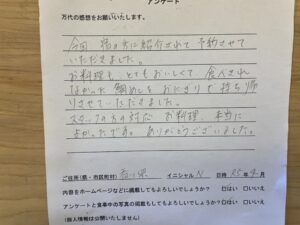 アンケート
万代の感想をお願いいたします。
今回 宿の方に紹介されて予約させて
いただきました。
お料理も とてもおいしくて、食べきれ
なかった 鯛めしを おにぎりで 持ち帰
りさせていただきました。
スタッフの方の対応 お料理 本当に
よかったです。ありがとうございました。
ご住所(県・市区町村) 香川県 イニシャル N 日時 25年9月
内容をホームページなどに掲載してもよろしいでしょうか? □はい □いいえ
アンケートと食事中の写真の掲載もしてもよろしいでしょうか? □はい □いいえ
(個人情報は公開いたしません)